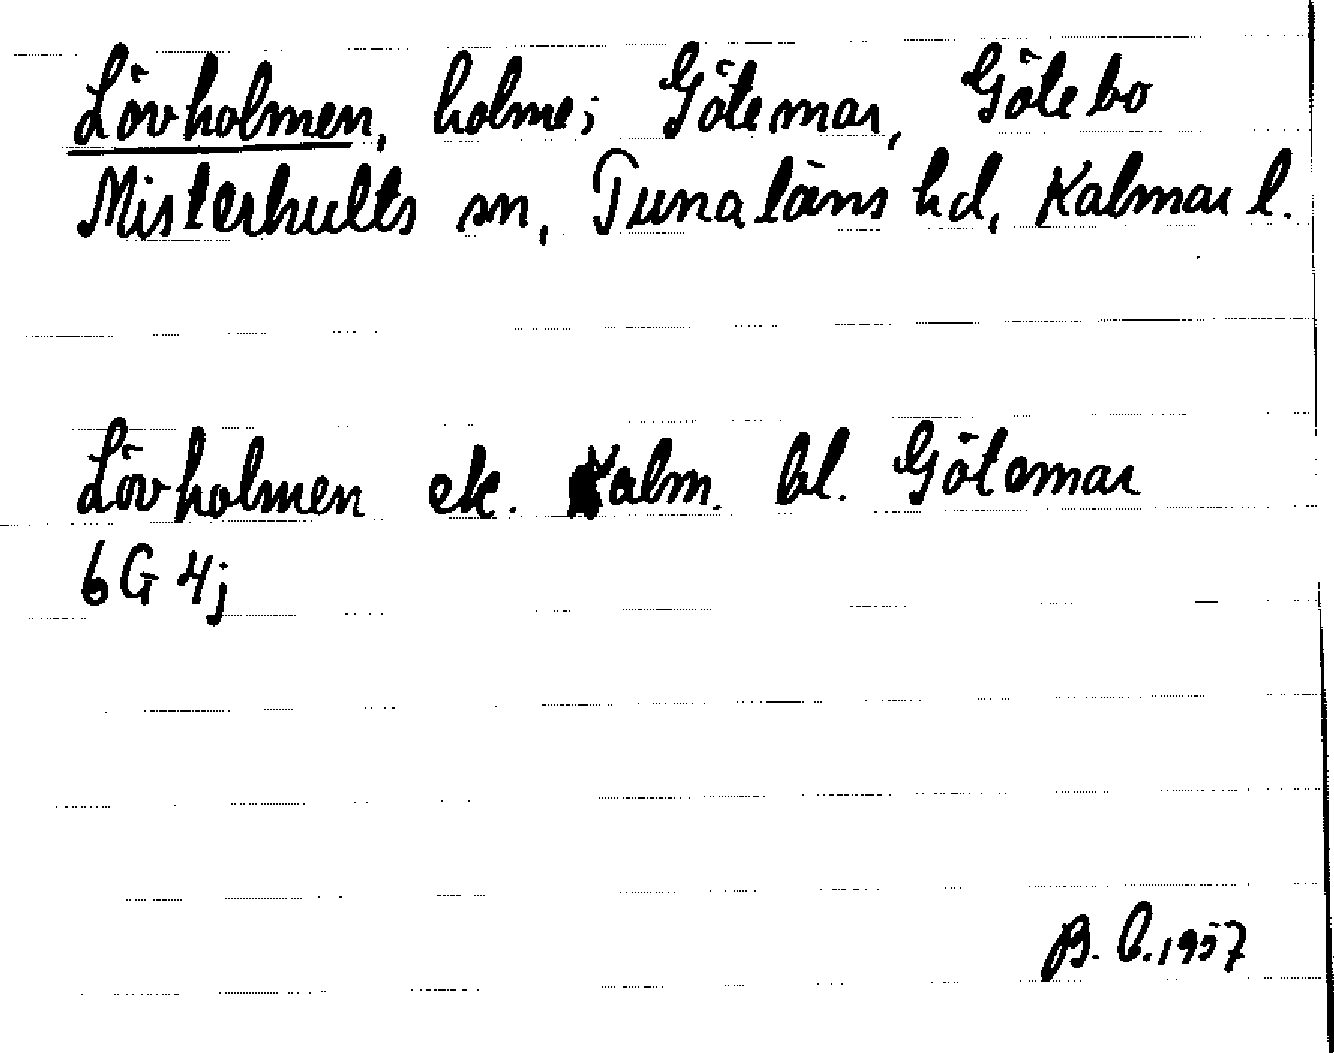 Lövholmen, holme i Götemar, Götebo
Misterhults sn, Tunaläns hd, Kalmar l.
Lövholmen ek. Kalm. bl. Götemar
6G 4j
B. C. 1957